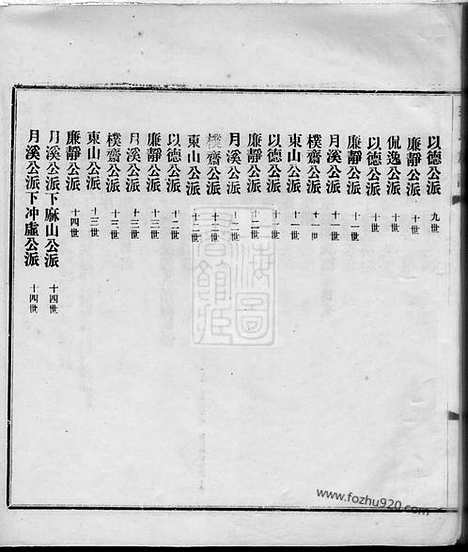 以德公派 九世
廉靜公派 十世
侃逸公派 十世
以德公派 十世
廉靜公派 十一世
月溪公派 十一世
樸齋公派 十一世
東山公派 十一世
以德公派 十一世
廉靜公派 十二世
月溪公派 十二世
樸齋公派 十二世
東山公派 十二世
以德公派 十二世
廉靜公派 十三世
月溪公派 十三世
樸齋公派 十三世
東山公派 十三世
廉靜公派 十四世
月溪公派下麻山公派 十四世
月溪公派下冲虛公派 十四世
www.fozhu920.com